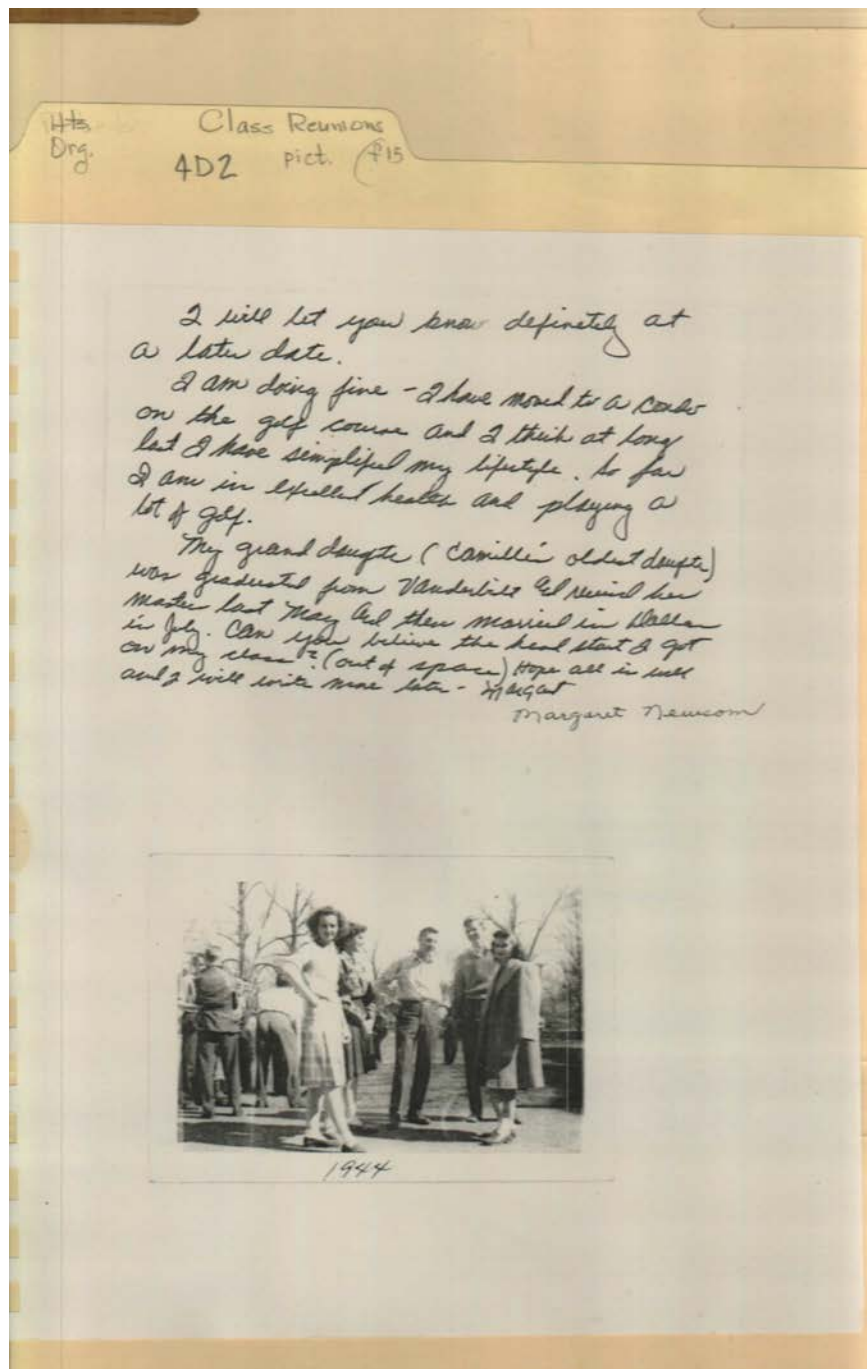 Hts Class Reunions
Org. 4D2 pict. $15
I will let you know definitely at
a later date.
I am doing fine - I have moved to a condo
on the golf course and I think at long
last I have simplified my lifestyle. So far
I am in excellent health and playing a
lot of golf.
My grand daughter (Camille's oldest daughter)
was graduated from Vanderbilt and received her
master last May and then married in Dallas
in July. Can you believe the head start I got
on my class? (out of space) Hope all is well
and I will write more later - Margaret
Margaret Newsom
1944